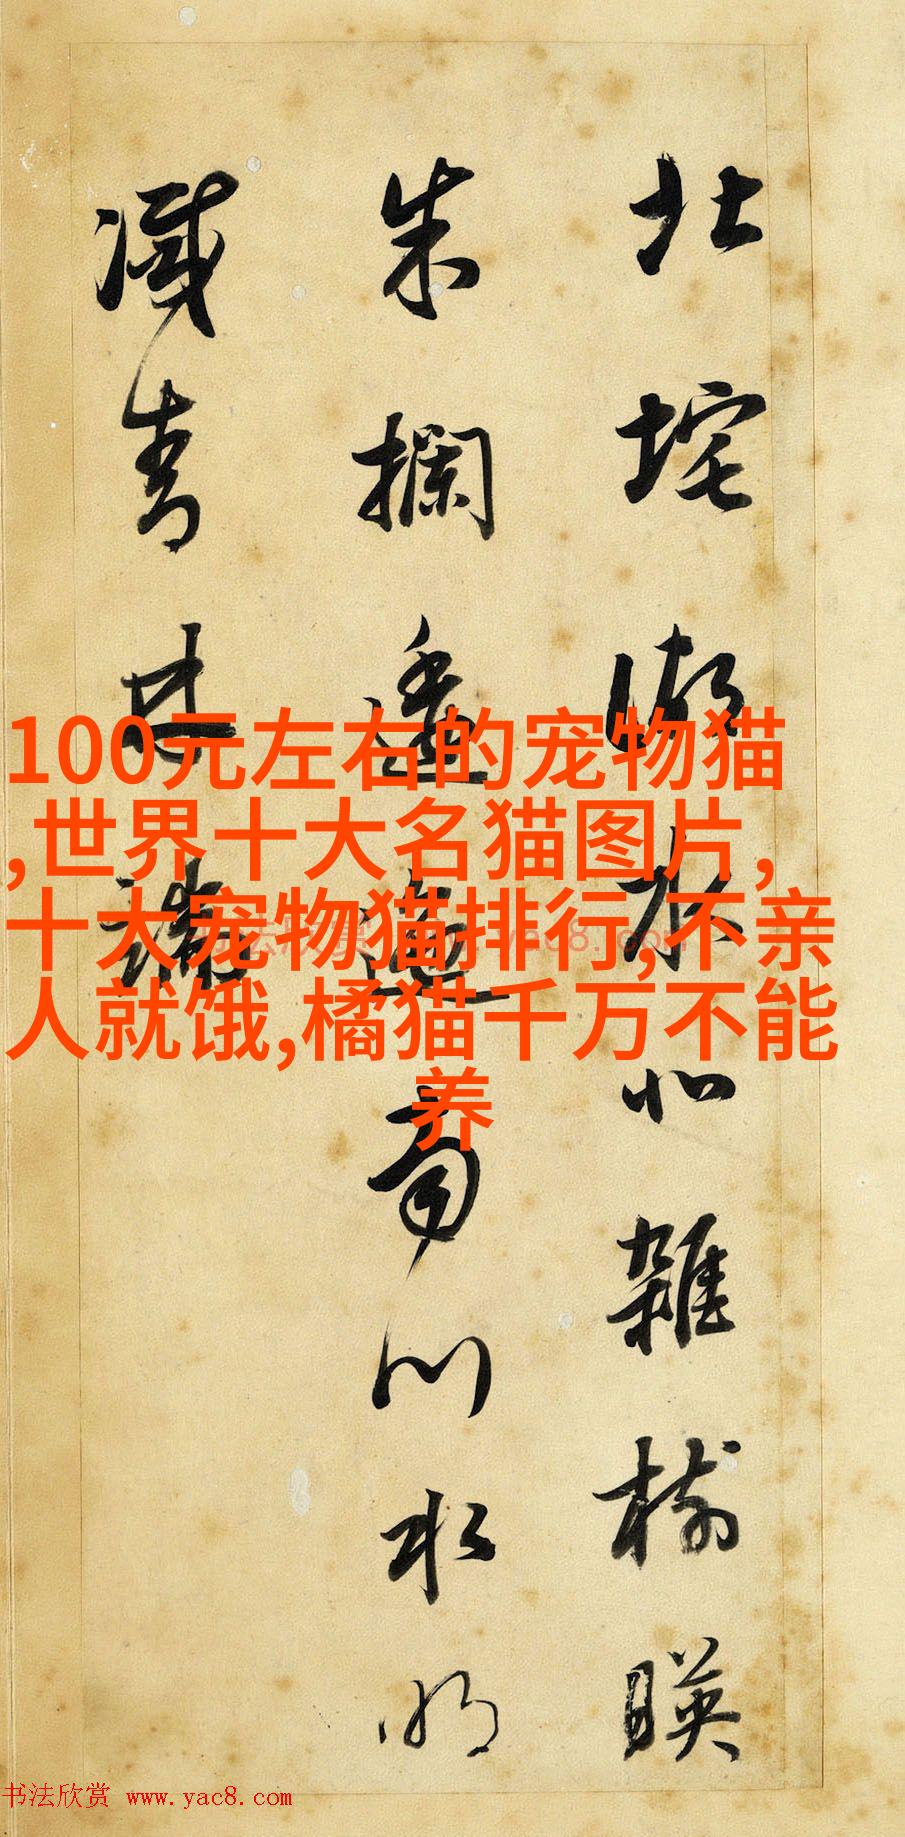 北垞湖水北雜樹暎
朱欄逶迤南川水明
滅青林端
100元左右的宠物猫
,世界十大名猫图片,
十大宠物猫排行,不亲
人就饿,橘猫千万不能
养
书法欣赏 www.yac8.com